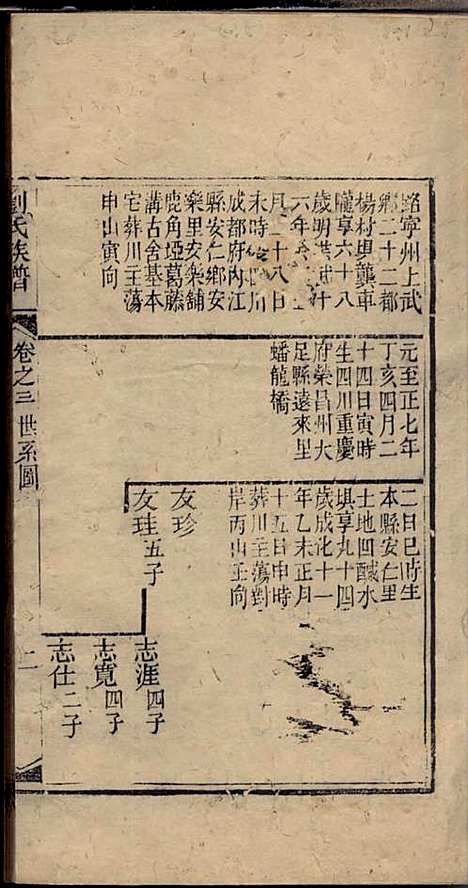 寧州上武
鄉二十二都
楊村垻龔車
隴享六十八
歲明洪武十
六年
月二十八日
未時 四川
成都府內江
縣安仁鄉安
樂里安樂舖
鹿角埡葛藤
溝古舍基本
宅葬川主蕩
申山寅向
元至正七年
丁亥四月二
十四日寅時
生四川重慶
府榮昌州大
足縣遠來里
蟠龍橋
二日巳時生
本縣安仁里
土地凹醎水
垻享九十四
歲成化十一
年乙未正月
十五日申時
葬川主蕩對
岸丙山壬向
友珍
友珪五子
志涯四子
志寬四子
志仕二子
劉氏族譜
卷之三
世系圖
二